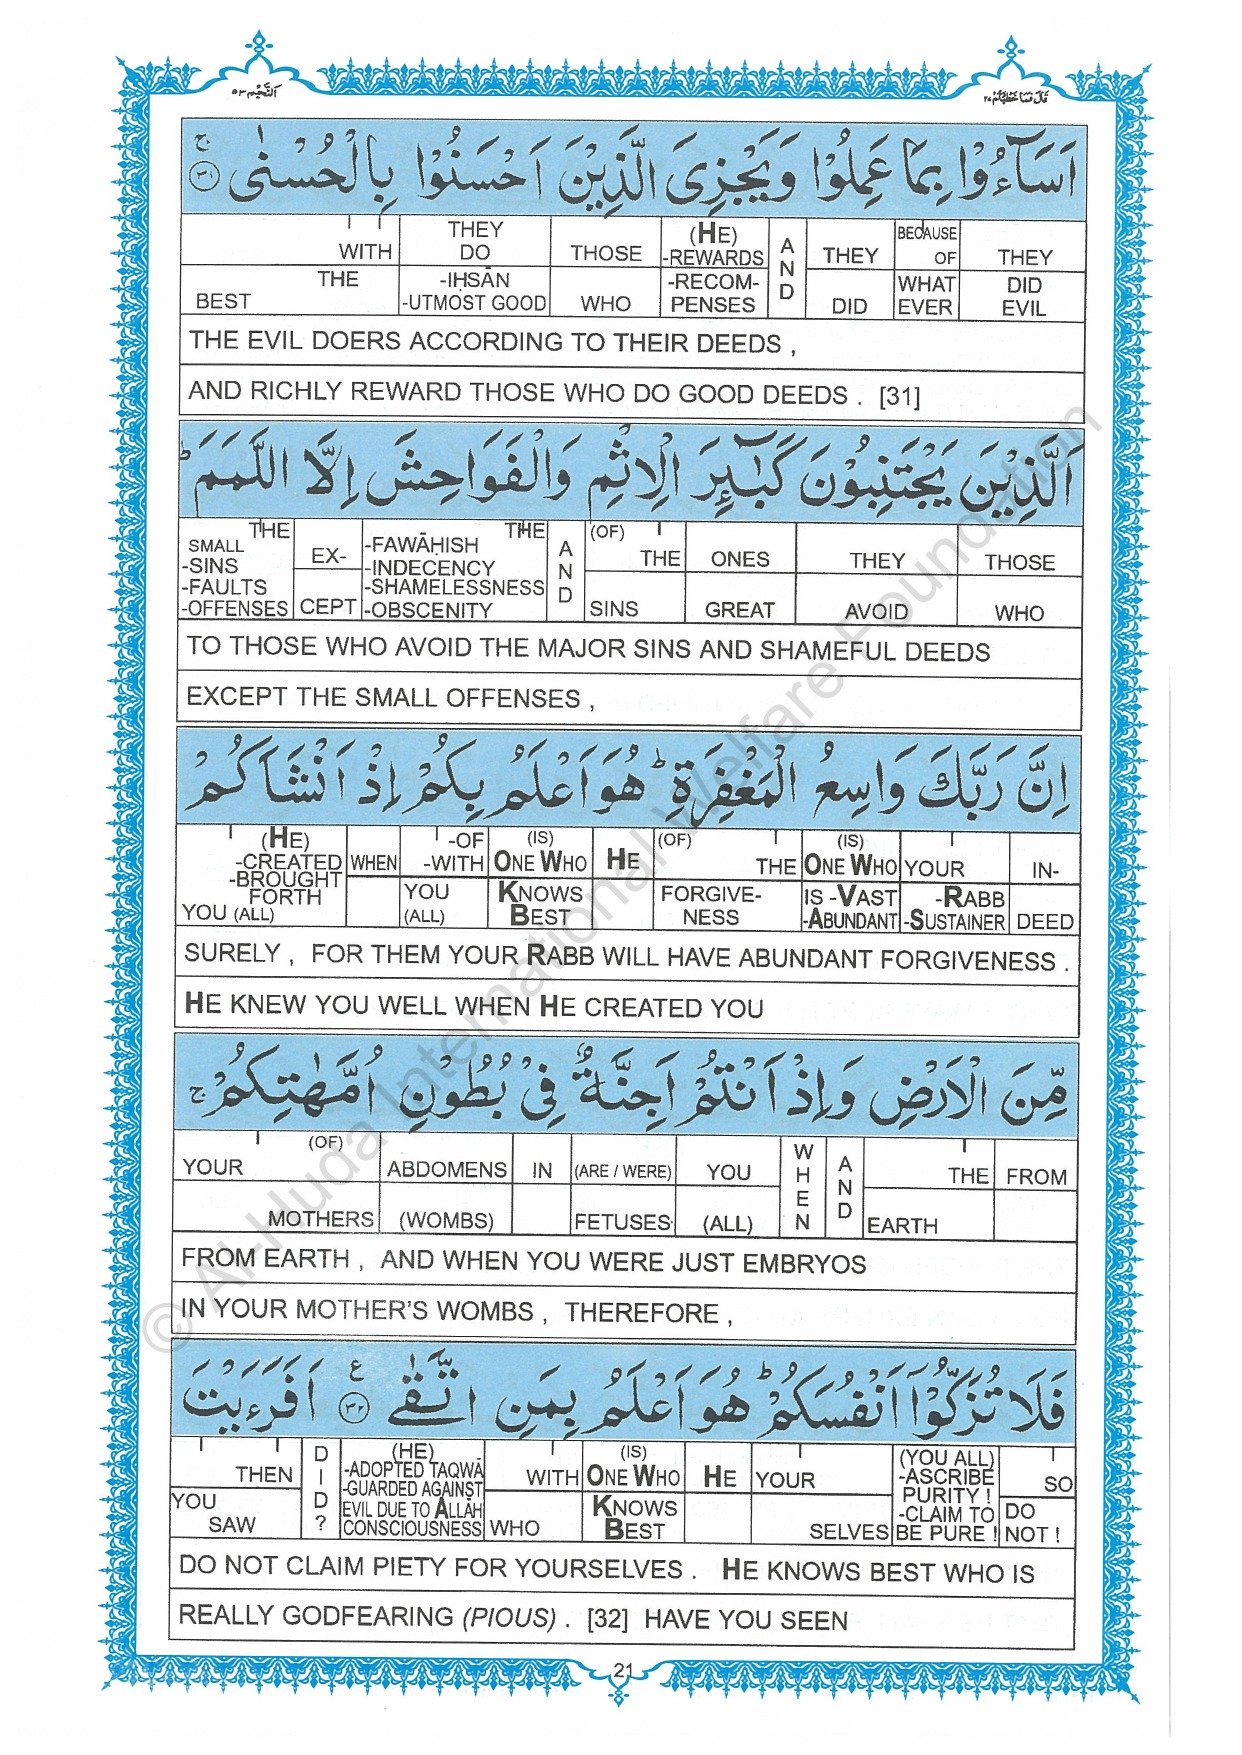 اَلنَّجْم ٥٣
قَالَ فَمَا خَطْبُكُمْ ٢٧
اَسَآءُوْا بِمَا عَمِلُوْا وَيَجْزِىَ الَّذِيْنَ اَحْسَنُوْا بِالْحُسْنٰى ۚ ٣١
WITH THE BEST | THEY DO -IḤSĀN -UTMOST GOOD | THOSE WHO | (HE) -REWARDS -RECOM-PENSES | AND | THEY DID | BECAUSE OF WHAT EVER | THEY DID EVIL
THE EVIL DOERS ACCORDING TO THEIR DEEDS ,
AND RICHLY REWARD THOSE WHO DO GOOD DEEDS . [31]
اَلَّذِيْنَ يَجْتَنِبُوْنَ كَبٰٓئِرَ الْاِثْمِ وَالْفَوَاحِشَ اِلَّا اللَّمَمَ ؕ
THE SMALL -SINS -FAULTS -OFFENSES | EX-CEPT | THE -FAWĀḤISH -INDECENCY -SHAMELESSNESS -OBSCENITY | AND | (OF) THE SINS | ONES GREAT | THEY AVOID | THOSE WHO
TO THOSE WHO AVOID THE MAJOR SINS AND SHAMEFUL DEEDS
EXCEPT THE SMALL OFFENSES ,
اِنَّ رَبَّكَ وَاسِعُ الْمَغْفِرَةِ ؕ هُوَ اَعْلَمُ بِكُمْ اِذْ اَنْشَاَكُمْ
(HE) -CREATED -BROUGHT FORTH YOU (ALL) | WHEN | -OF -WITH YOU (ALL) | (IS) ONE WHO KNOWS BEST | HE | (OF) THE FORGIVE-NESS | (IS) ONE WHO IS -VAST -ABUNDANT | YOUR -RABB -SUSTAINER | IN-DEED
SURELY , FOR THEM YOUR RABB WILL HAVE ABUNDANT FORGIVENESS .
HE KNEW YOU WELL WHEN HE CREATED YOU
مِّنَ الْاَرْضِ وَاِذْ اَنْتُمْ اَجِنَّةٌ فِىْ بُطُوْنِ اُمَّهٰتِكُمْ ۚ
YOUR (OF) MOTHERS | ABDOMENS (WOMBS) | IN | (ARE / WERE) FETUSES | YOU (ALL) | WHEN | AND | THE EARTH | FROM
FROM EARTH , AND WHEN YOU WERE JUST EMBRYOS
IN YOUR MOTHER'S WOMBS , THEREFORE ,
فَلَا تُزَكُّوْٓا اَنْفُسَكُمْ ؕ هُوَ اَعْلَمُ بِمَنِ اتَّقٰى ٣٢ ع اَفَرَءَيْتَ
THEN YOU SAW | DID? | (HE) -ADOPTED TAQWĀ -GUARDED AGAINST EVIL DUE TO ALLĀH CONSCIOUSNESS | WITH WHO | (IS) ONE WHO KNOWS BEST | HE | YOUR SELVES | (YOU ALL) -ASCRIBE PURITY ! -CLAIM TO BE PURE ! | SO DO NOT !
DO NOT CLAIM PIETY FOR YOURSELVES . HE KNOWS BEST WHO IS
REALLY GODFEARING (PIOUS) . [32] HAVE YOU SEEN
21
© Al-Huda International Welfare Foundation